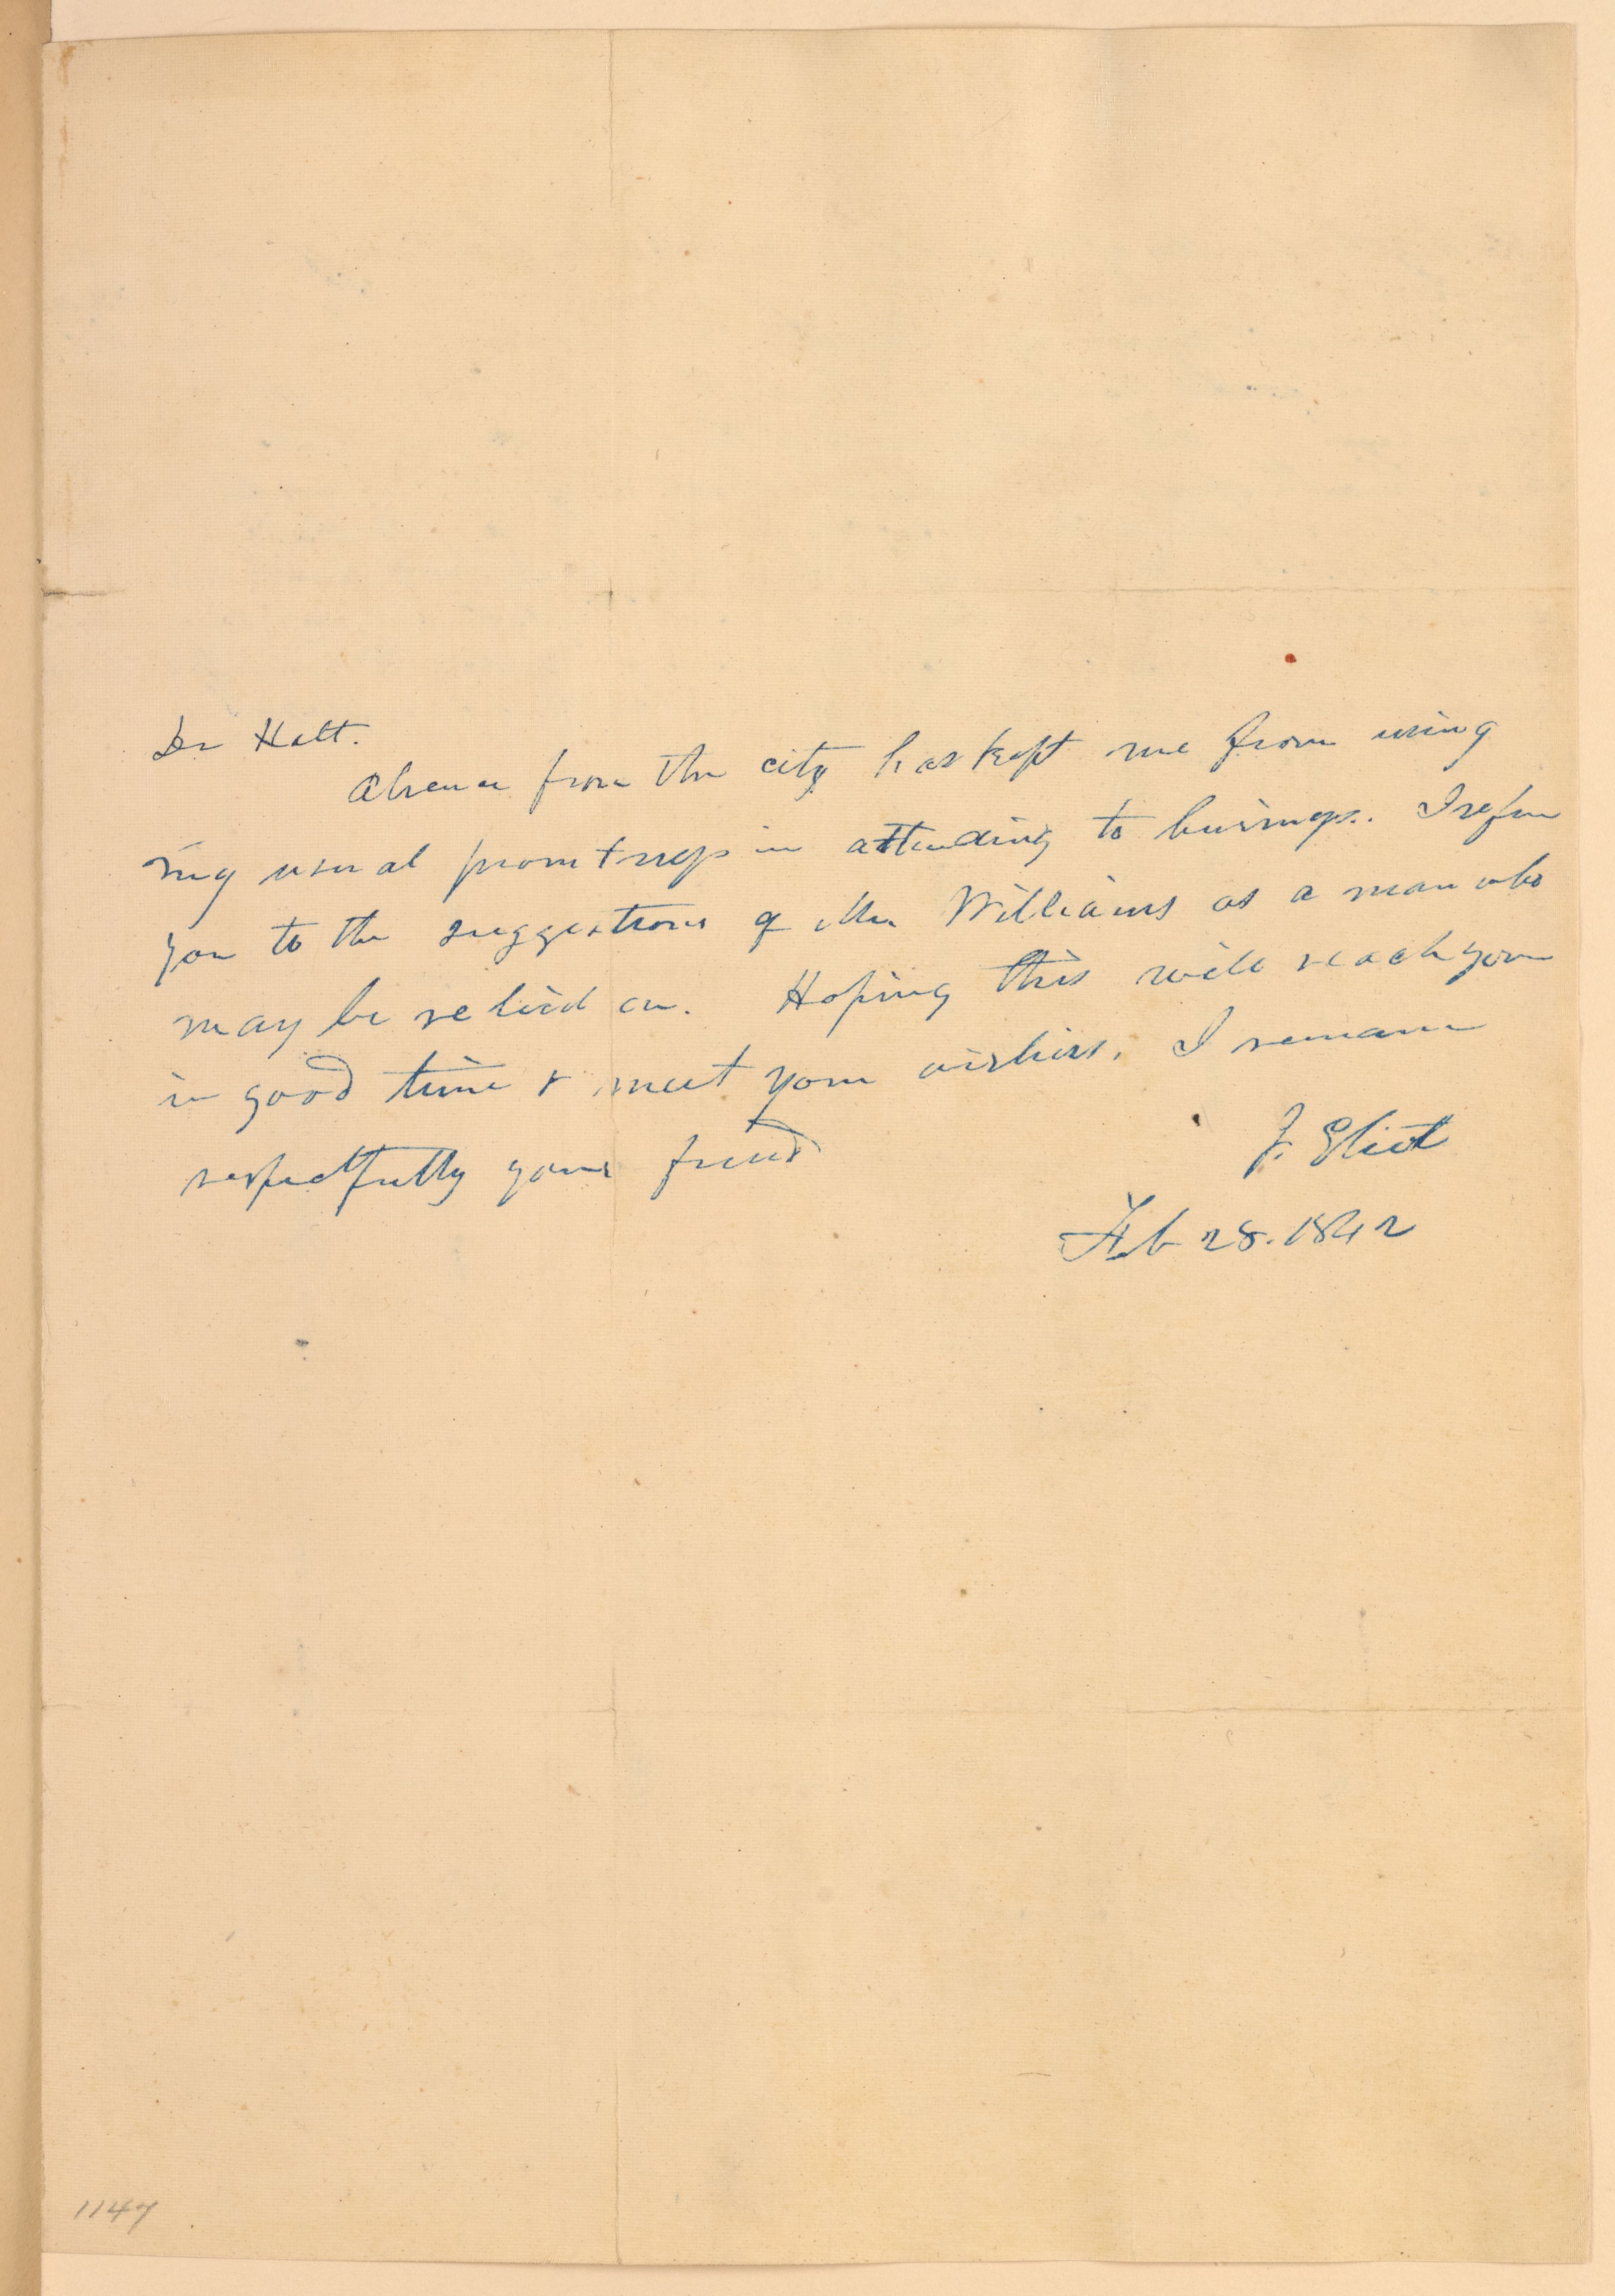 Dr Hatt.
Absence from the city has kept me from using
my usual promtness in attending to business. I refer
you to the suggestions of Mr. Williams as a man who
may be relied on. Hoping this will reach you
in good time & meet your wishes, I remain
respectfully your friend
J. Eliot
Feb 28. 1842
1147